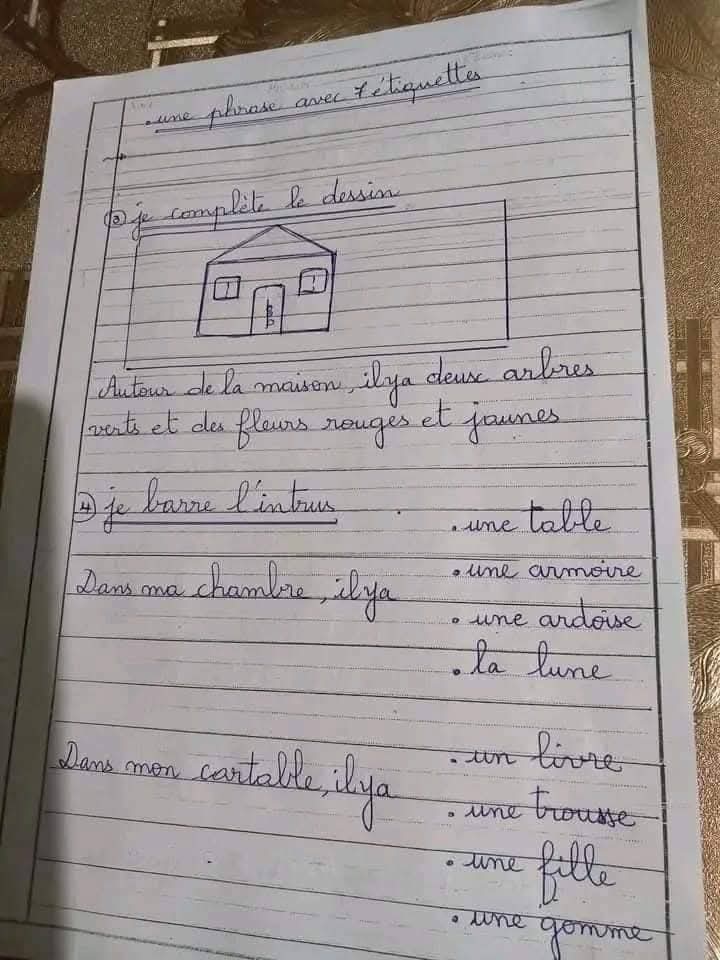 . une phrase avec 7 étiquettes
③ je complète le dessin
Autour de la maison, il ya deux arbres
verts et des fleurs rouges et jaunes
④ je barre l'intrus
. une table
Dans ma chambre, il ya
. une armoire
. une ardoise
. la lune
Dans mon cartable, il ya
. un livre
. une trousse
. une fille
. une gomme